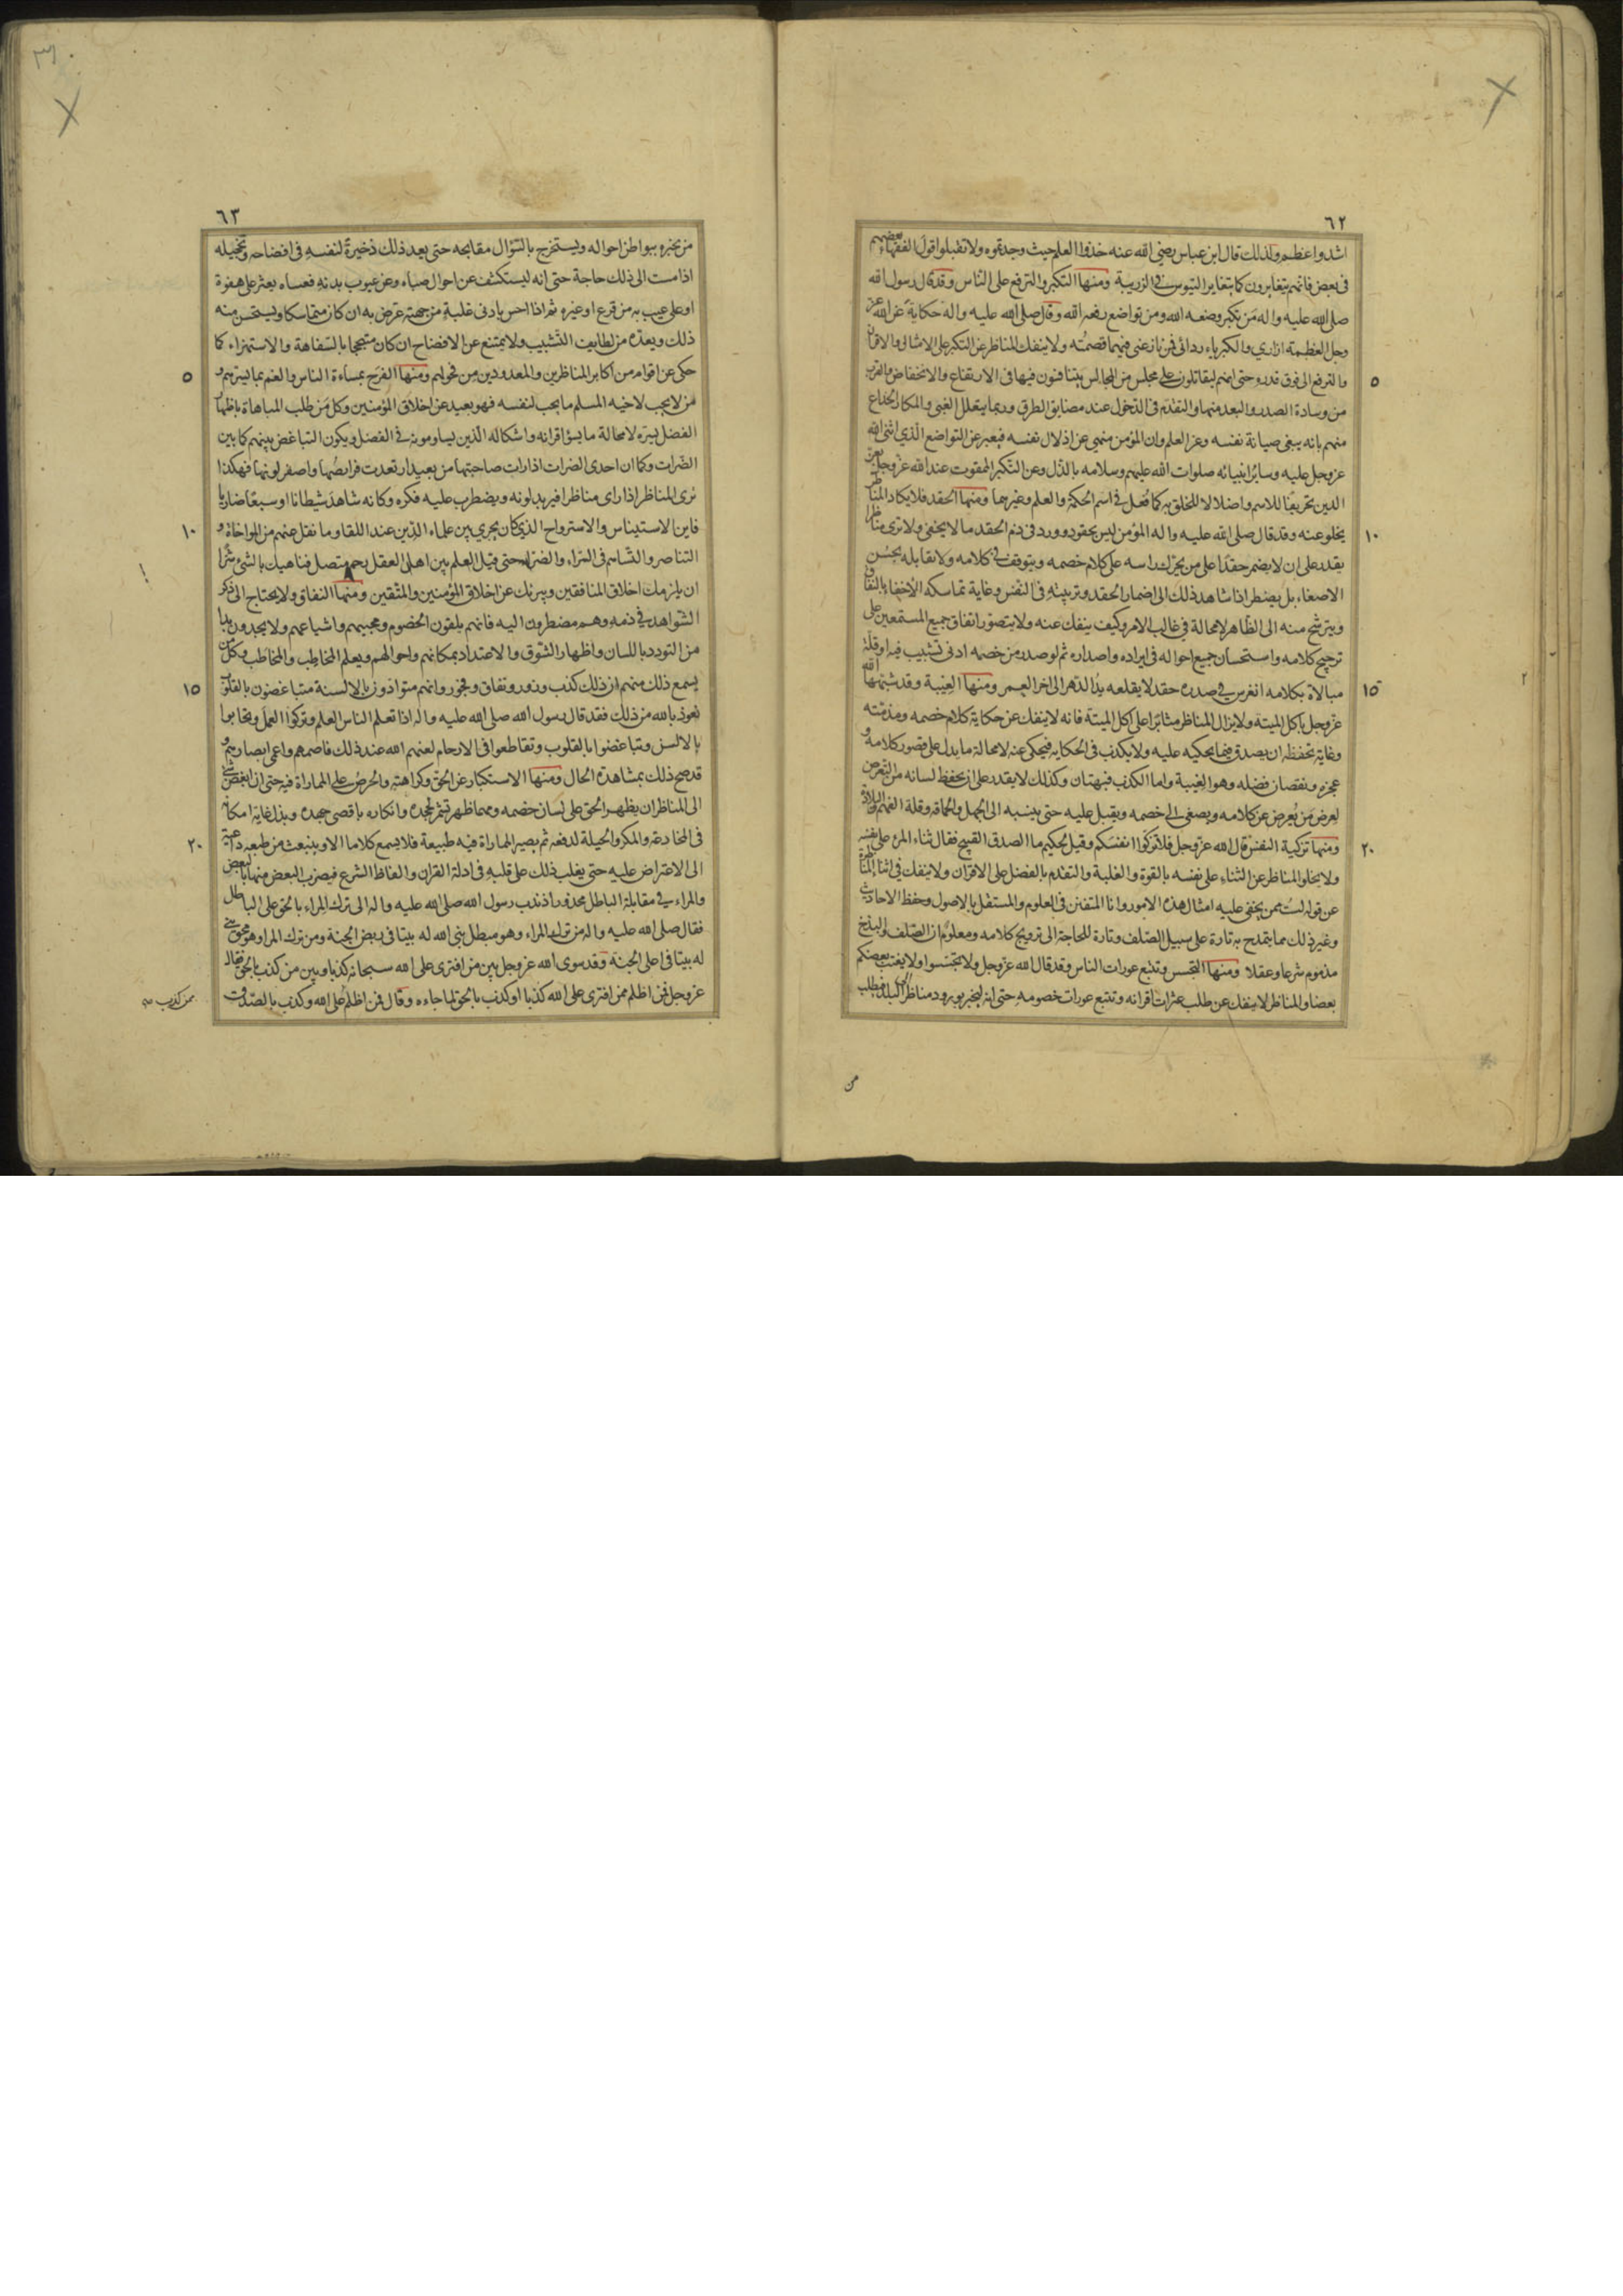 ٦٢
اشد واعظم ولذلك قال ابن عباس رضي الله عنه خذوا العلم حيث وجدتموه ولا تقبلوا قول الفقهاء بعضهم
فى بعض فانهم يتغايرون كما يتغاير التيوس فى الزريبة ومنها التكبر والترفع على الناس وقد قال رسول الله
صلى الله عليه واله من تكبر وضعه الله ومن تواضع رفعه الله وقال صلى الله عليه واله حكاية عن الله عز
وجل العظمة ازاري والكبرياء ردائى فمن نازعنى فيهما قصمته ولا ينفك المناظر عن التكبر على الامثال والاقران
والترفع الى فوق قدره حتى انهم ليقاتلون على مجلس من المجالس يتنافسون فيها فى الارتفاع والانخفاض والقرب
٥
من وسادة الصدر والبعد منها والتقدم فى الدخول عند مضايق الطرق وربما يتعلل الغبى والمكار الخداع
منهم بانه يبغى صيانة نفسه وعز العلم وان المؤمن منهى عن اذلال نفسه فيعبر عن التواضع الذي اثنى الله
عز وجل عليه وسائر انبيائه صلوات الله عليهم وسلامه بالذل وعن التكبر الممقوت عند الله عز وجل بعز
الدين تحريفا للاسم واضلالا للخلق به كما فعل فى اسم الحكمة والعلم وغيرهما ومنها الحقد فلا يكاد المناظر
يخلو عنه وقد قال صلى الله عليه واله المؤمن ليس بحقود وورد فى ذم الحقد ما لا يخفى ولا ترى مناظرا
١٠
يقدر على ان لا يضمر حقدا على من يحرك راسه على كلام خصمه ويتوقف فى كلامه ولا يقابله بحسن
الاصغاء بل يضطر اذا شاهد ذلك الى اضمار الحقد وتربيته فى النفس وغاية تماسكه الاخفاء بالنفاق
ويترشح منه الى الظاهر لا محالة فى غالب الامر وكيف ينفك عنه ولا يتصور اتفاق جميع المستمعين على
ترجيح كلامه واستحسان جميع احواله فى ايراده واصداره ثم لو صدر من خصمه ادنى تشبيب فيه او قلة
مبالاة بكلامه انغرس فى صدره حقد لا يقلعه يد الدهر الى اخر العمر ومنها الغيبة وقد شبهها الله
١٥
عز وجل باكل الميتة ولا يزال المناظر مثابرا على اكل الميتة فانه لا ينفك عن حكاية كلام خصمه ومذمته
وغاية تحفظه ان يصدق فيما يحكيه عليه ولا يكذب فى الحكاية فيحكى عنه لا محالة ما يدل على قصور كلامه و
عجزه ونقصان فضله وهو الغيبة واما الكذب فبهتان وكذلك لا يقدر على ان يحفظ لسانه من التعرض
لعرض من يعرض عن كلامه ويصغى الى خصمه ويقبل عليه حتى ينسبه الى الجهل والحماقة وقلة الفهم والبلادة
ومنها تزكية النفس قال الله عز وجل فلا تزكوا انفسكم وقيل لحكيم ما الصدق القبيح فقال ثناء المرء على نفسه
٢٠
ولا يخلو المناظر عن الثناء على نفسه بالقوة والغلبة والتقدم بالفضل على الاقران ولا ينفك فى اثناء المناظرة
عن قوله لست ممن يخفى عليه امثال هذه الامور وانا المتفنن فى العلوم والمستقل بالاصول وحفظ الاحاديث
وغير ذلك مما يتمدح به تارة على سبيل الصلف وتارة للحاجة الى ترويج كلامه ومعلوم ان الصلف والبذخ
مذموم شرعا وعقلا ومنها التجسس وتتبع عورات الناس وقد قال الله عز وجل ولا تجسسوا ولا يغتب بعضكم
بعضا والمناظر لا ينفك عن طلب عثرات اقرانه وتتبع عورات خصومه حتى انه ليخبر بورود مناظر الى البلد فيطلب
من
٦٣
من يخبره ببواطن احواله ويستخرج بالسؤال مقابحه حتى يعد ذلك ذخيرة لنفسه فى افضاحه وتخجيله
اذا مست الى ذلك حاجة حتى انه ليستكشف عن احوال صباه وعن عيوب بدنه فعساه يعثر على هفوة
او على عيب به من قرع او غيره ثم اذا احس بادنى غلبة من جهته عرض به ان كان متماسكا ويستحسن منه
ذلك ويعده من لطايف التشبيب ولا يمتنع عن الافضاح ان كان متبجحا بالسفاهة والاستهزاء كما
حكى عن اقوام من اكابر المناظرين والمعدودين من فحولهم ومنها الفرح بمساءة الناس والغم بما يسرهم و
٥
من لا يحب لاخيه المسلم ما يحب لنفسه فهو بعيد عن اخلاق المؤمنين وكل من طلب المباهاة باظهار
الفضل ليسره لا محالة ما يسؤ اقرانه واشكاله الذين يساومونه فى الفضل ويكون التباغض بينهم كما بين
الضرات وكما ان احدى الضرات اذا رات صاحبتها من بعيد ارتعدت فرايصها واصفر لونها فهكذا
ترى المناظر اذا راى مناظرا فيربد لونه ويضطرب عليه فكره وكانه شاهد شيطانا او سبعا ضاريا
فاين الاستيناس والاسترواح الذي كان يجري بين علماء الدين عند اللقاء وما نقل عنهم من المواخاة و
١٠
التناصر والتساهم فى السراء والضراء حتى قيل العلم بين اهل العقل رحم متصل فناهيك بالشىء شرا
ان يلزمك اخلاق المنافقين ويبرئك عن اخلاق المؤمنين والمتقين ومنها النفاق ولا يحتاج الى ذكر
الشواهد فى ذمه وهم مضطرون اليه فانهم يلقون الخصوم ومحبيهم واشياعهم ولا يجدون بدا
من التودد باللسان واظهار الشوق والاعتداد بمكانهم واحوالهم ويعلم المخاطِب والمخاطَب وكل من
يسمع ذلك منهم ان ذلك كذب وزور ونفاق وفجور وانهم متوادون بالالسنة متباغضون بالقلوب
١٥
نعوذ بالله من ذلك فقد قال رسول الله صلى الله عليه واله اذا تعلم الناس العلم وتركوا العمل وتحابوا
بالالسن وتباغضوا بالقلوب وتقاطعوا فى الارحام لعنهم الله عند ذلك فاصمهم واعمى ابصارهم و
قد صح ذلك بمشاهدة الحال ومنها الاستكبار عن الحق وكراهته والحرص على المماراة فيه حتى ان ابغض شىء
الى المناظر ان يظهر الحق على لسان خصمه ومهما ظهر تشمر لجحده وانكاره باقصى جهده وبذل غاية امكانه
فى المخادعة والمكر والحيلة لدفعه ثم يصير المماراة فيه طبيعة فلا يسمع كلاما الا وينبعث من طبعه داعية
٢٠
الى الاعتراض عليه حتى يغلب ذلك على قلبه فى ادلة القران والفاظ الشرع فيضرب البعض منها بالبعض
والمراء فى مقابلة الباطل محذور اذ ندب رسول الله صلى الله عليه واله الى ترك المراء بالحق على الباطل
فقال صلى الله عليه واله من ترك المراء وهو مبطل بنى الله له بيتا فى ربض الجنة ومن ترك المراء وهو محق بنى
له بيتا فى اعلى الجنة وقد سوى الله عز وجل بين من افترى على الله سبحانه كذبا وبين من كذب بالحق فقال
عز وجل فمن اظلم ممن افترى على الله كذبا او كذب بالحق لما جاءه وقال فمن اظلم على الله وكذب بالصدق
ممن كذب صح